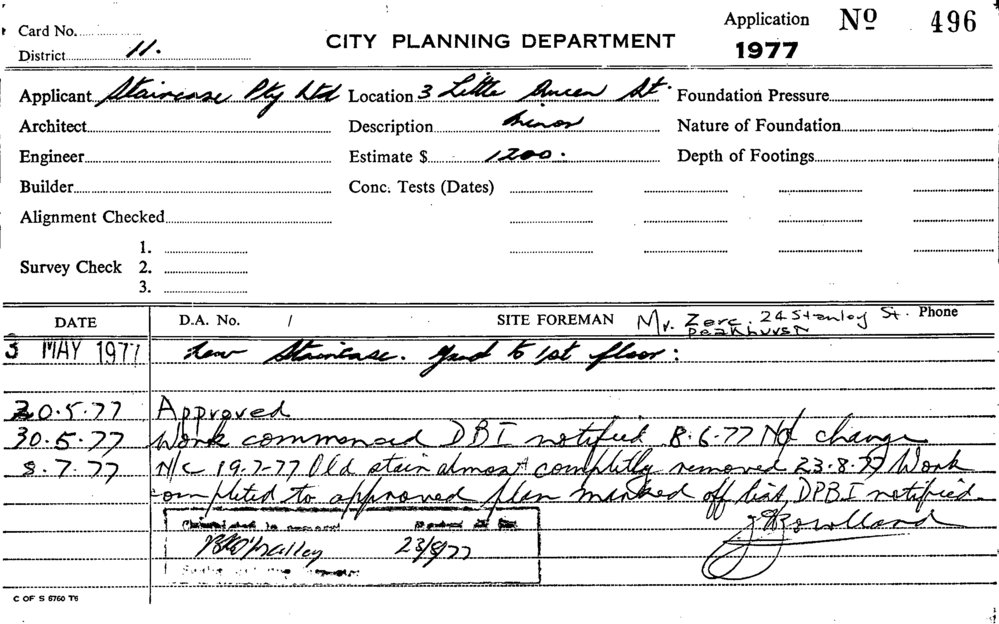 Card No.
District 11.
CITY PLANNING DEPARTMENT
Application No 496
1977
Applicant Staircase Pty Ltd Location 3 Little Queen St. Foundation Pressure
Architect Description Minor Nature of Foundation
Engineer Estimate $ 1200. Depth of Footings
Builder Conc. Tests (Dates)
Alignment Checked
Survey Check 1.
2.
3.
DATE D.A. No. / SITE FOREMAN Mr. Zerc. 24 Stanley St. Phone
Peakhurst
3 MAY 1977 New Staircase. Grnd to 1st floor:
20.5.77 Approved
30.5.77 Work commenced DBI notified 8.6.77 No change
8.7.77 N/C 19-7-77 Old stair almost complitly removed 23.8.77 Work
completed to approved plan marked off list, DPBI notified
J Rowlland
B O'Malley 23/8/77
C OF S 6760 T6